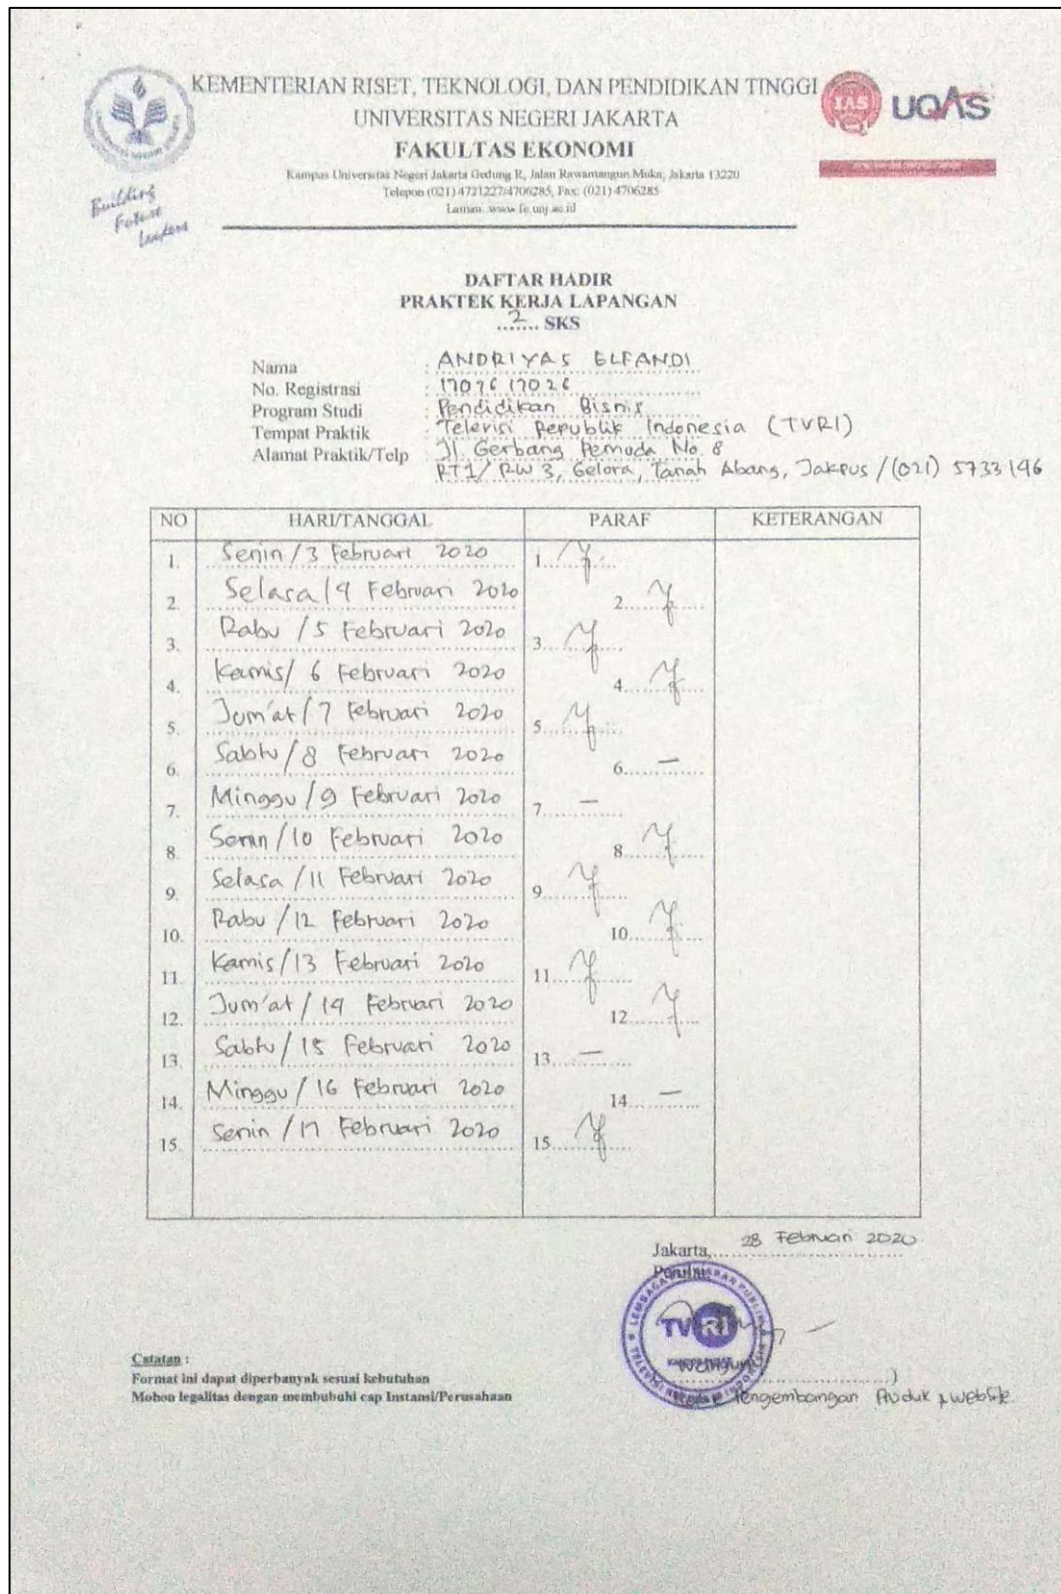 KEMENTERIAN RISET, TEKNOLOGI, DAN PENDIDIKAN TINGGI
UNIVERSITAS NEGERI JAKARTA
FAKULTAS EKONOMI
Kampus Universitas Negeri Jakarta Gedung R, Jalan Rawamangun Muka, Jakarta 13220
Telepon (021) 4721227/4706285, Fax: (021) 4706285
Laman: www.fe.unj.ac.id
IAS UQAS
Building
Future
Leaders
DAFTAR HADIR
PRAKTEK KERJA LAPANGAN
...2... SKS
Nama : ANDRIYAS ELFANDI
No. Registrasi : 1707617026
Program Studi : Pendidikan Bisnis
Tempat Praktik : Televisi Republik Indonesia (TVRI)
Alamat Praktik/Telp : Jl. Gerbang Pemuda No. 8
RT1/RW 3, Gelora, Tanah Abang, Jakpus / (021) 5733196
NO HARI/TANGGAL PARAF KETERANGAN
1. Senin / 3 Februari 2020 1.
2. Selasa / 4 Februari 2020 2.
3. Rabu / 5 Februari 2020 3.
4. Kamis / 6 Februari 2020 4.
5. Jum'at / 7 Februari 2020 5.
6. Sabtu / 8 Februari 2020 6. —
7. Minggu / 9 Februari 2020 7. —
8. Senin / 10 Februari 2020 8.
9. Selasa / 11 Februari 2020 9.
10. Rabu / 12 Februari 2020 10.
11. Kamis / 13 Februari 2020 11.
12. Jum'at / 14 Februari 2020 12.
13. Sabtu / 15 Februari 2020 13. —
14. Minggu / 16 Februari 2020 14. —
15. Senin / 17 Februari 2020 15.
Jakarta, 28 Februari 2020
Penilai,
TVRI
Catatan :
Format ini dapat diperbanyak sesuai kebutuhan
Mohon legalitas dengan membubuhi cap Instansi/Perusahaan
)
Pengembangan Produk & Website